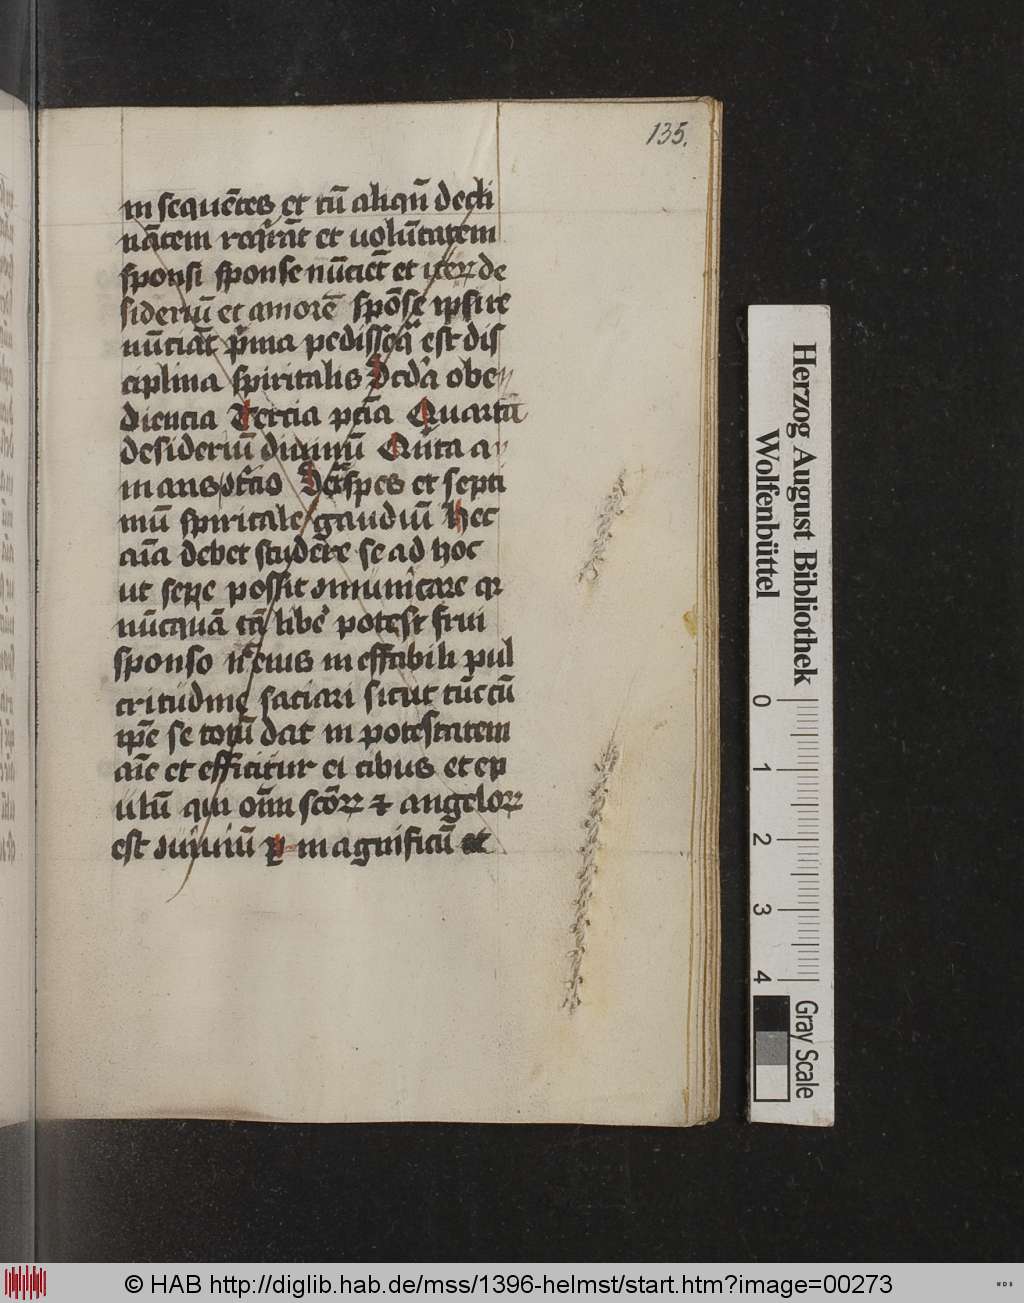 135.
in sequētes et cū aliqñ decli
nātem reqirāt et uolūtatem
sponsi sponse nūciēt et iterꝝ de
siderium et amorē spōse ipsi re
nūciāt prima pedisseqa est dis
ciplina spiritalis Scda obe
diencia Tercia pciā Quartū
desiderium diuinū Quīta a
mans Sexta spes et septi
mū spiritale gaudiū Hec
aīa debet studēre se ad hoc
ut sepe possit ↄmunicare qr
nūcquā tā libe potest frui
sponso nec eius in effabili pul
critudīne saciari sicut tūc cū
ipē se totū dat in potestatem
aīe et efficitur ei cibus et ep
ulū qui oīm scōrꝝ ⁊ angelorꝝ
est ↄuiuiū in magnificū et
Herzog August Bibliothek
Wolfenbüttel
0 1 2 3 4
Gray Scale
© HAB http://diglib.hab.de/mss/1396-helmst/start.htm?image=00273